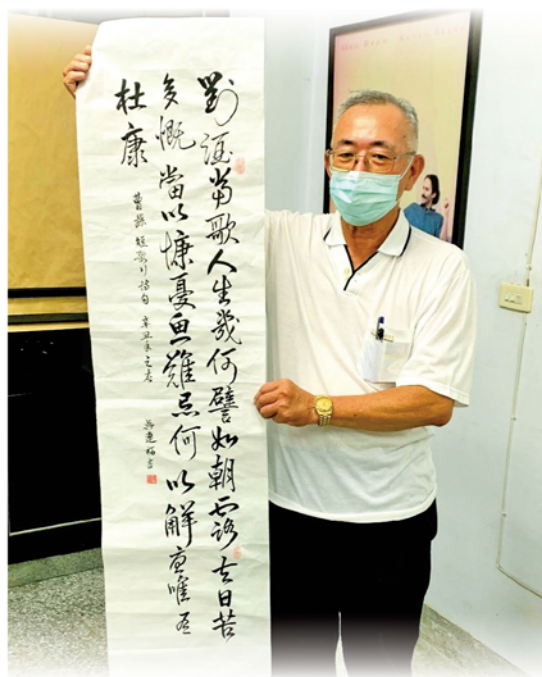 對酒當歌人生幾何譬如朝露去日苦
多慨當以慷憂思難忘何以解憂唯有
杜康
曹操 短歌行詩句 辛丑年之春